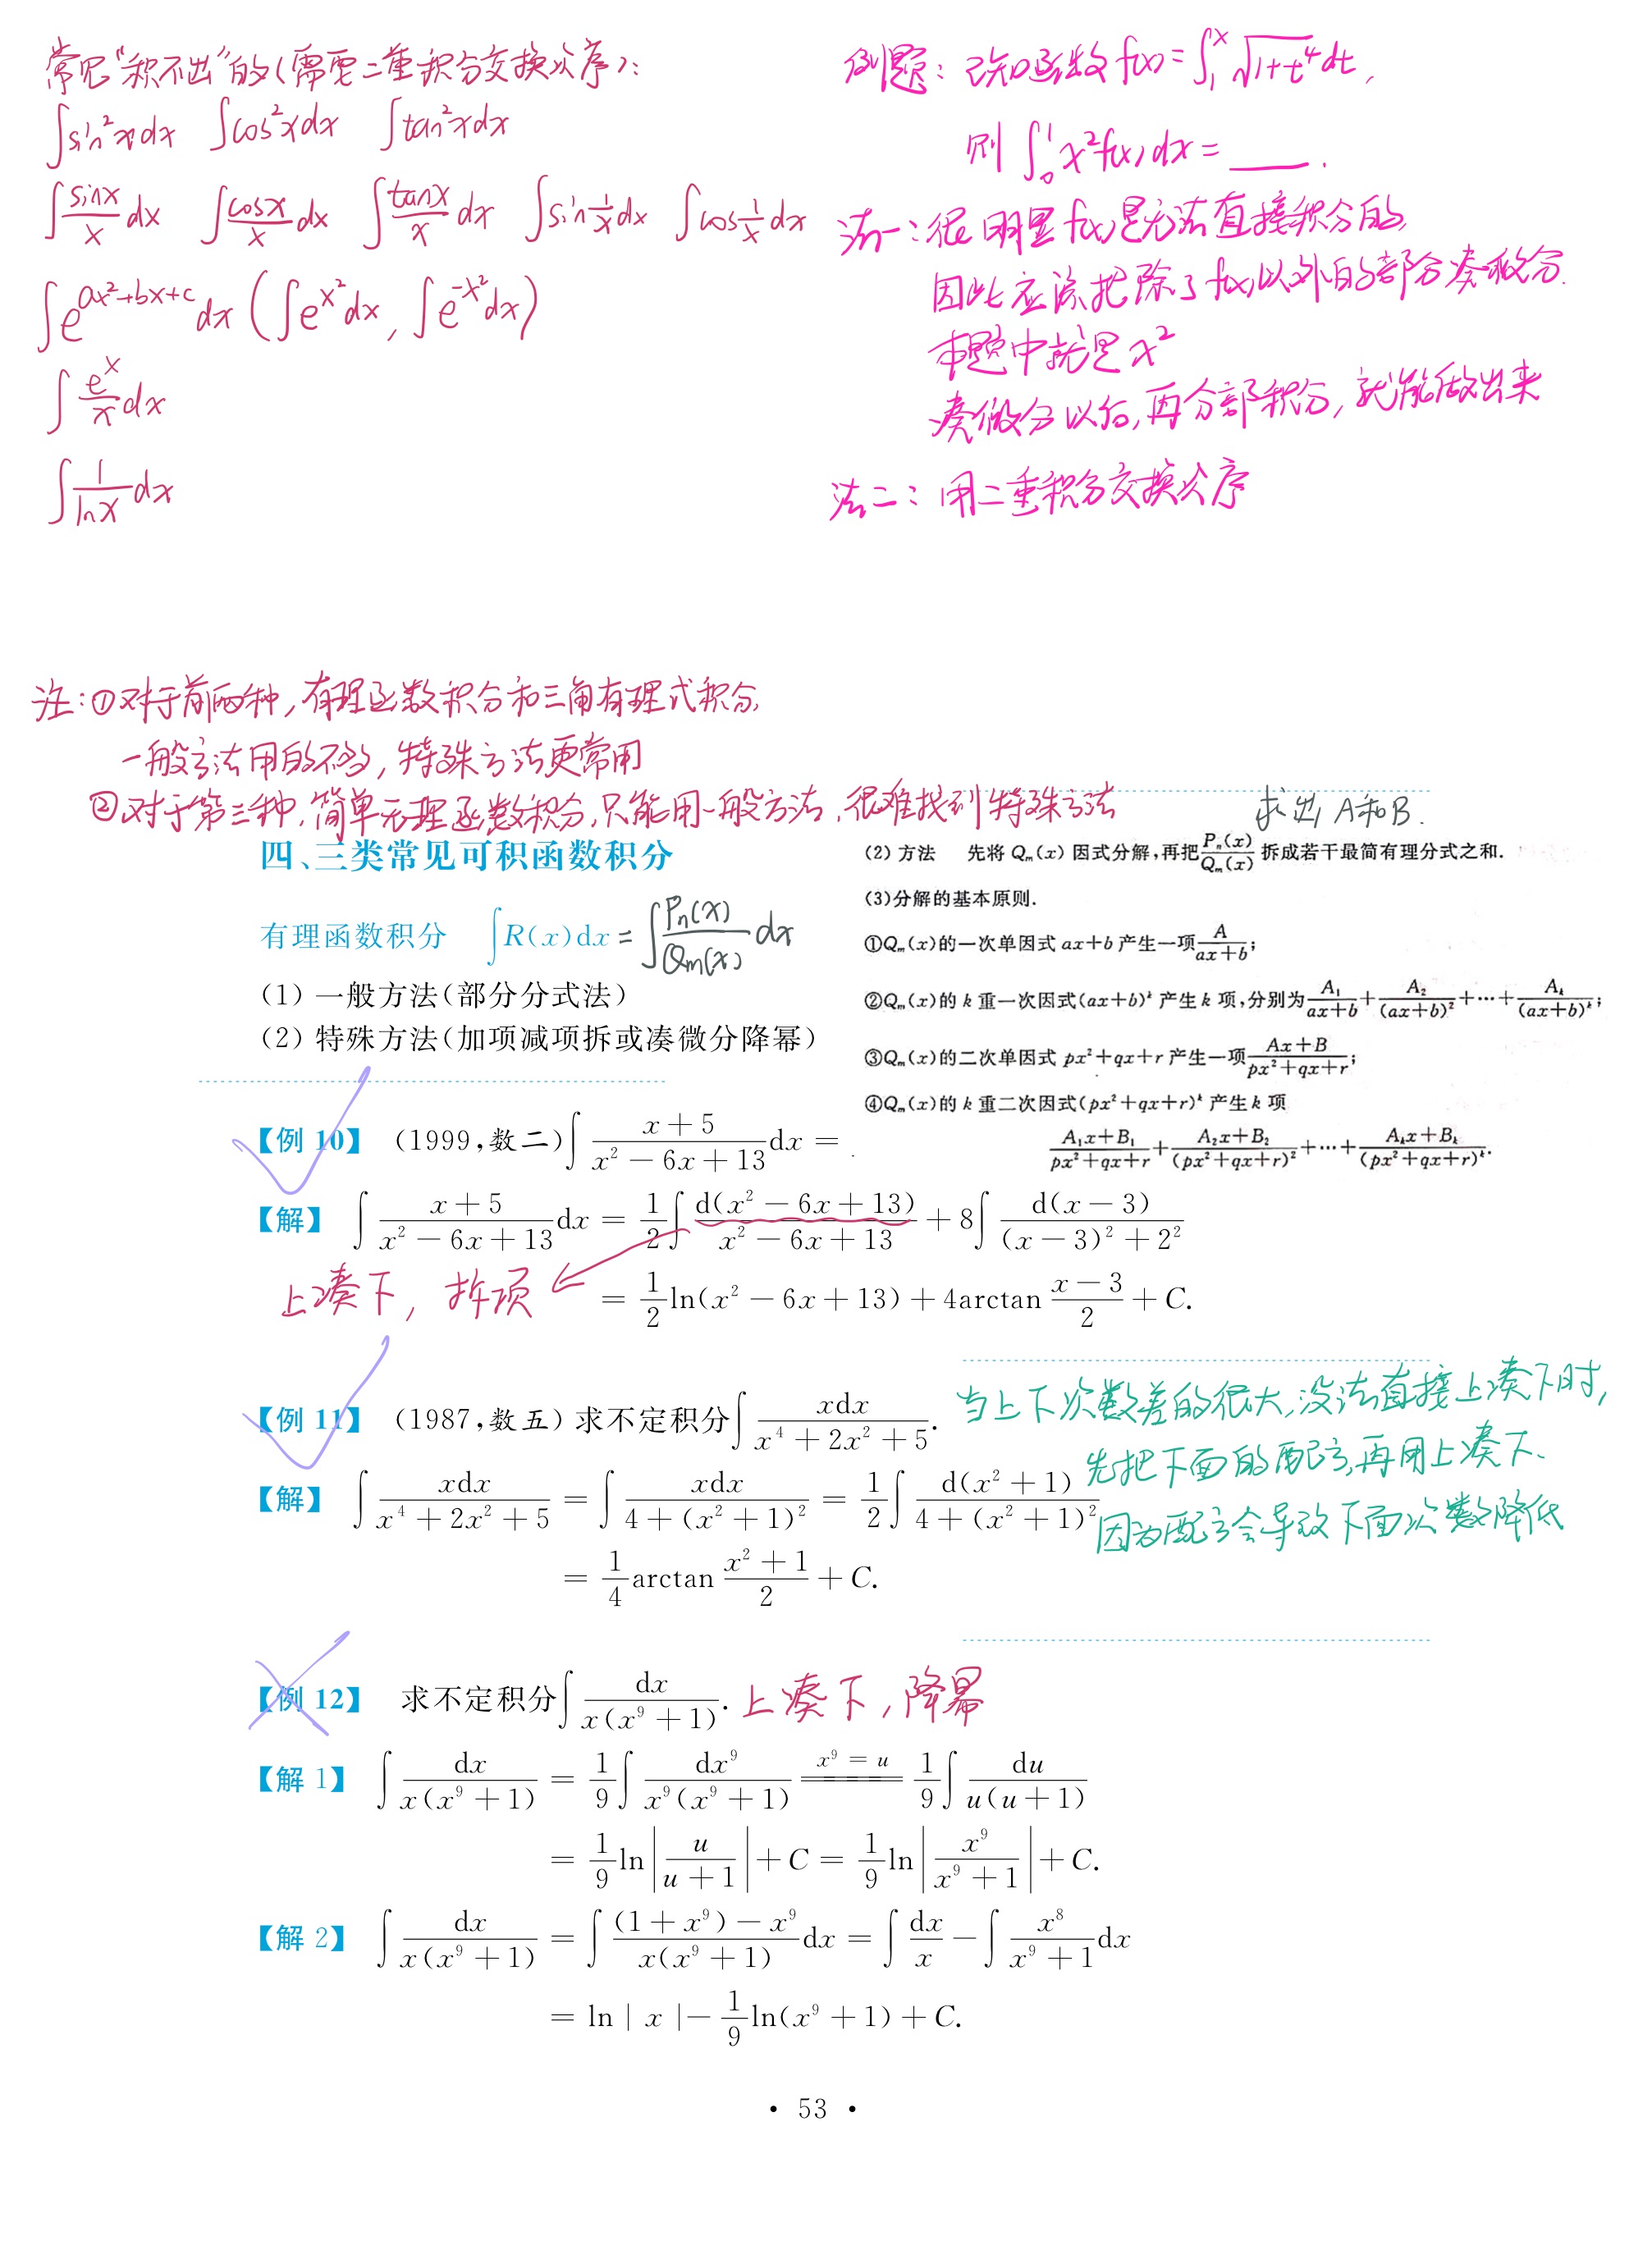 常见“积不出”的(需要二重积分交换次序):
∫sin²xdx ∫cos²xdx ∫tan²xdx
∫(sinx/x)dx ∫(cosx/x)dx ∫(tanx/x)dx ∫sin(1/x)dx ∫cos(1/x)dx
∫e^(ax²+bx+c)dx (∫e^(x²)dx, ∫e^(-x²)dx)
∫(e^x/x)dx
∫(1/lnx)dx
例题: 已知函数f(x)=∫₁ˣ√(1+t⁴)dt,
则∫₀¹x²f(x)dx=____.
法一:很明显f(x)是无法直接积分的,
因此应该把除了f(x)以外的部分凑微分.
本题中就是x²
凑微分以后,再分部积分,就能做出来
法二:用二重积分交换次序
注:①对于前两种,有理函数积分和三角有理式积分,
一般方法用的不多,特殊方法更常用
②对于第三种,简单无理函数积分,只能用一般方法,很难找到特殊方法
四、三类常见可积函数积分
有理函数积分 ∫R(x)dx = ∫(Pn(x)/Qm(x))dx
(1) 一般方法(部分分式法)
(2) 特殊方法(加项减项拆或凑微分降幂)
求出A和B.
(2) 方法 先将Qₘ(x)因式分解,再把Pₙ(x)/Qₘ(x)拆成若干最简有理分式之和.
(3)分解的基本原则.
①Qₘ(x)的一次单因式ax+b产生一项A/(ax+b);
②Qₘ(x)的k重一次因式(ax+b)ᵏ产生k项,分别为A₁/(ax+b)+A₂/(ax+b)²+⋯+Aₖ/(ax+b)ᵏ;
③Qₘ(x)的二次单因式px²+qx+r产生一项(Ax+B)/(px²+qx+r);
④Qₘ(x)的k重二次因式(px²+qx+r)ᵏ产生k项
(A₁x+B₁)/(px²+qx+r)+(A₂x+B₂)/(px²+qx+r)²+⋯+(Aₖx+Bₖ)/(px²+qx+r)ᵏ.
【例 10】 (1999,数二)∫(x+5)/(x²−6x+13)dx = .
【解】 ∫(x+5)/(x²−6x+13)dx = (1/2)∫d(x²−6x+13)/(x²−6x+13) + 8∫d(x−3)/((x−3)²+2²)
上凑下, 拆项
= (1/2)ln(x²−6x+13)+4arctan((x−3)/2)+C.
【例 11】 (1987,数五) 求不定积分∫xdx/(x⁴+2x²+5).
当上下次数差的很大,没法直接上凑下时,
先把下面的配方,再用上凑下.
因为配方会导致下面次数降低
【解】 ∫xdx/(x⁴+2x²+5) = ∫xdx/(4+(x²+1)²) = (1/2)∫d(x²+1)/(4+(x²+1)²)
= (1/4)arctan((x²+1)/2)+C.
【例 12】 求不定积分∫dx/(x(x⁹+1)). 上凑下,降幂
【解 1】 ∫dx/(x(x⁹+1)) = (1/9)∫dx⁹/(x⁹(x⁹+1)) x⁹=u (1/9)∫du/(u(u+1))
= (1/9)ln|u/(u+1)|+C = (1/9)ln|x⁹/(x⁹+1)|+C.
【解 2】 ∫dx/(x(x⁹+1)) = ∫((1+x⁹)−x⁹)/(x(x⁹+1))dx = ∫dx/x − ∫x⁸/(x⁹+1)dx
= ln|x|−(1/9)ln(x⁹+1)+C.
• 53 •